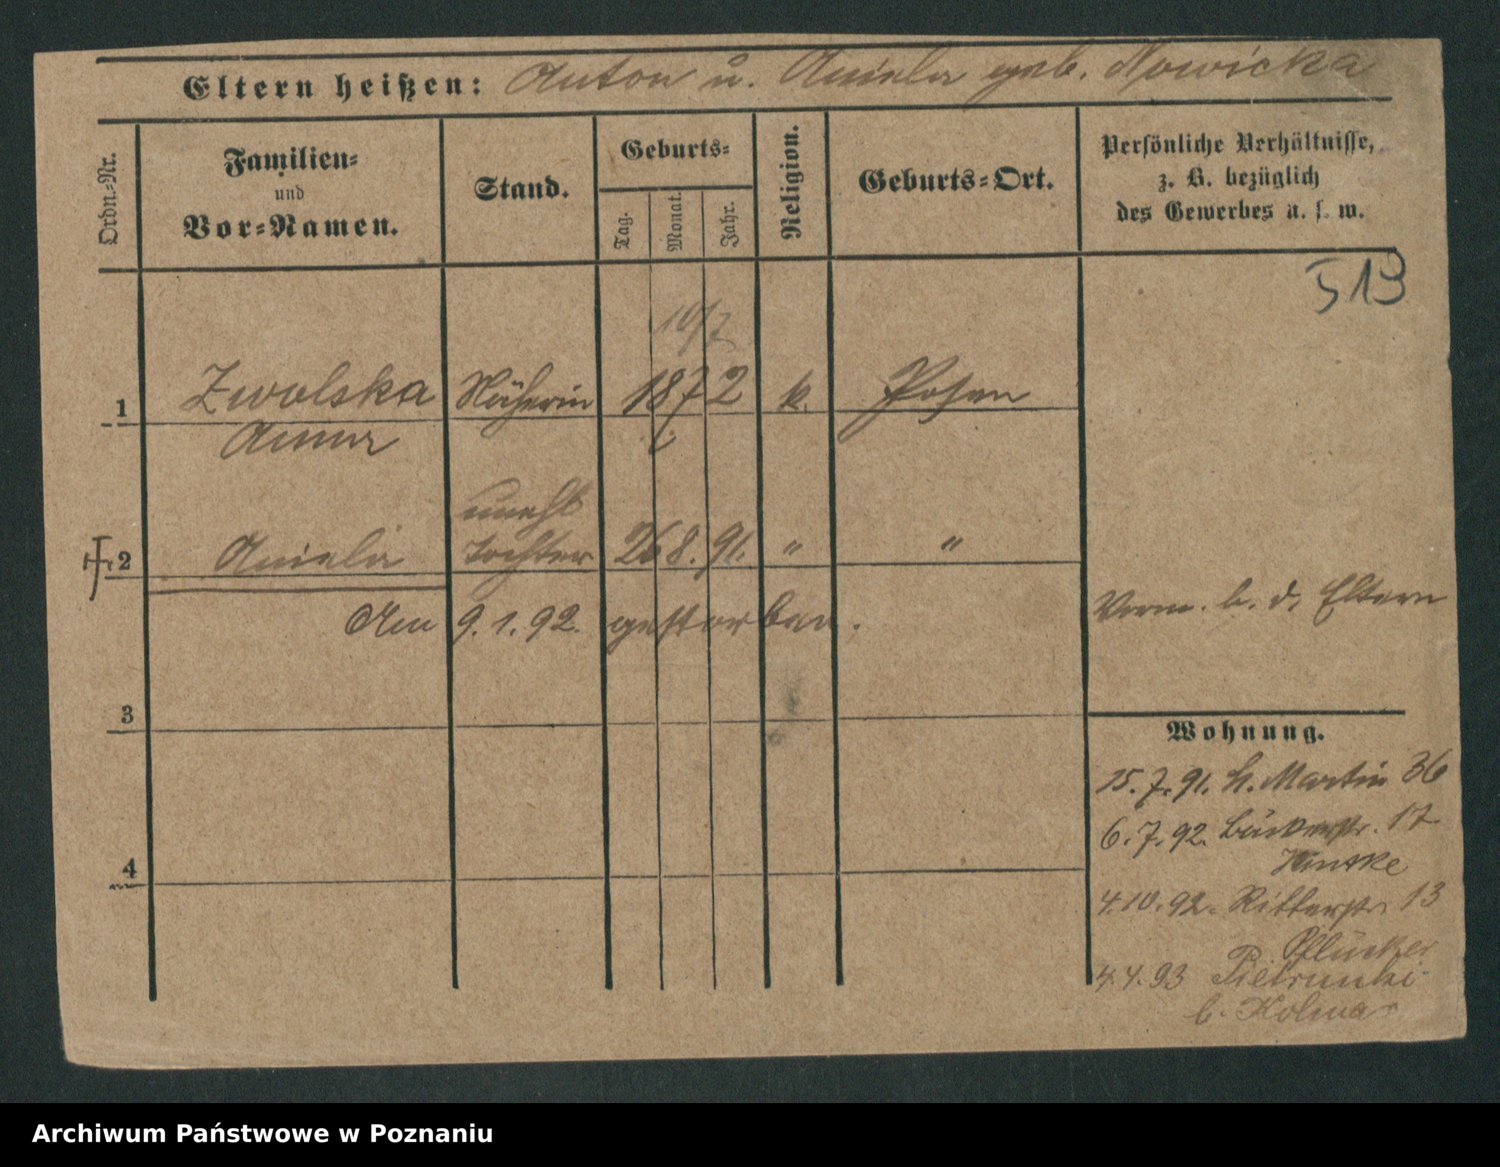 Eltern heißen: Anton u. Aniela geb. Nowicka
Ordn.-Nr.
Familien-
und
Vor-Namen.
Stand.
Geburts-
Tag.
Monat.
Jahr.
Religion.
Geburts-Ort.
Persönliche Verhältnisse,
z. B. bezüglich
des Gewerbes u. s. w.
513
10/7
1 Zwolska Näherin 1872 k. Posen
Anna
unehl
2 Aniela Tochter 26 8. 91. " "
Am 9. 1. 92. gestorben.
Verm. b. d. Eltern
3
Wohnung.
15. 7. 91. St. Martin 36
6. 7. 92. Bäckerstr. 17
4
4. 10. 92. Ritterstr. 13
Pflücker
4. 4. 93
b. Kolmar
Archiwum Państwowe w Poznaniu